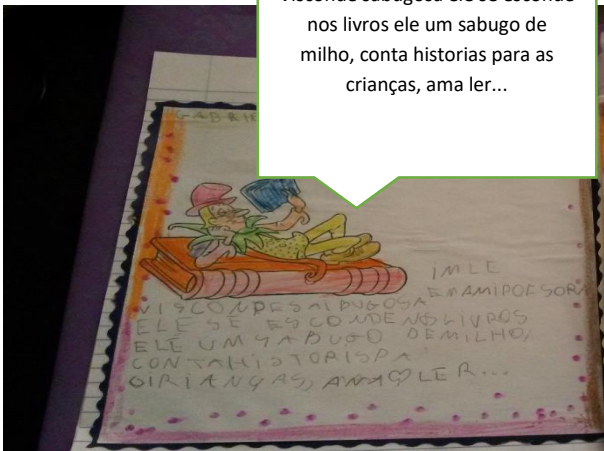 nos livros ele um sabugo de
milho, conta historias para as
crianças, ama ler...
GABRI
IMLE
EMAMIPOFSORA
VISCONDESAIBUGOSA
ELE SE ESCONDE NOSLIVROS
ELE UMSABUGO DEMILHO,
CONTAHISTORISPA
CIRIANÇAS, AMA♡LER...